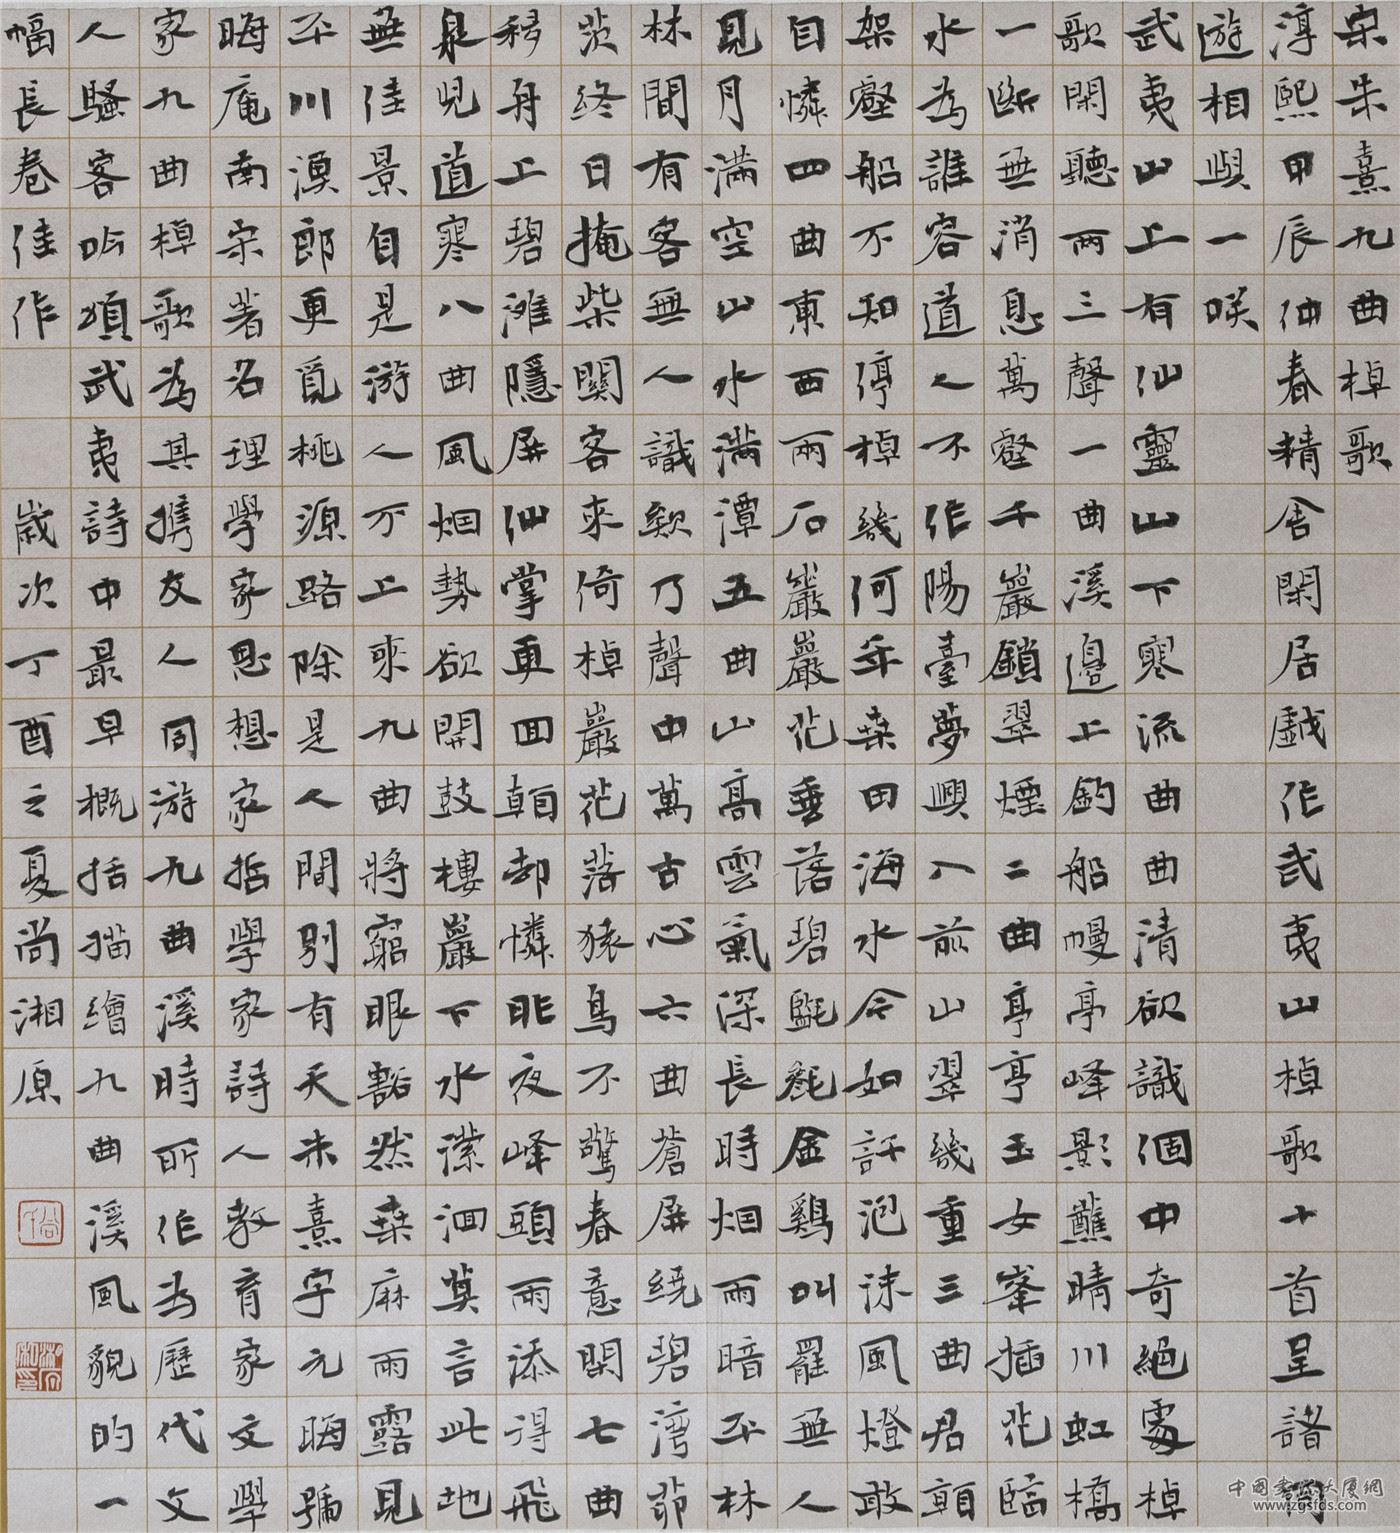 宋朱熹九曲棹歌
淳熙甲辰仲春精舍閑居戲作武夷山棹歌十首呈諸同
遊相與一咲
武夷山上有仙靈山下寒流曲曲清欲識個中奇絕處棹
歌閑聽兩三聲一曲溪邊上釣船幔亭峰影蘸晴川虹橋
一斷無消息萬壑千巖鎖翠煙二曲亭亭玉女峯插花臨
水為誰容道人不作陽臺夢興入前山翠幾重三曲君
架壑船不知停棹幾何年桑田海水今如許泡沫風燈敢
自憐四曲東西兩石巖巖花垂落碧㲯毿金鷄叫罷無人
見月滿空山水滿潭五曲山高雲氣深長時烟雨暗平林
林間有客無人識欸乃聲中萬古心六曲蒼屏繞碧灣茆
茨終日掩柴關客來倚棹巖花落猿鳥不驚春意閑七曲
移舟上碧灘隱屏仙掌更回却憐昨夜峰頭雨添得飛
泉道寒八曲風烟勢欲開鼓樓巖下水瀠洄莫言此地
無佳景自是游人不上來九曲將窮眼豁然桑麻雨露見
平川漁郎更覓桃源路除是人間別有天朱熹字元晦號
晦庵南宋著名理學家思想家哲學家詩人教育家文學
家九曲棹歌為其携友人同游九曲溪時所作為歷代文
人騷客吟頌武夷詩中最早概括描繪九曲溪風貌的一
幅長卷佳作 歲次丁酉之夏尚湘原
中国书法大厦网
www.zgsfds.com